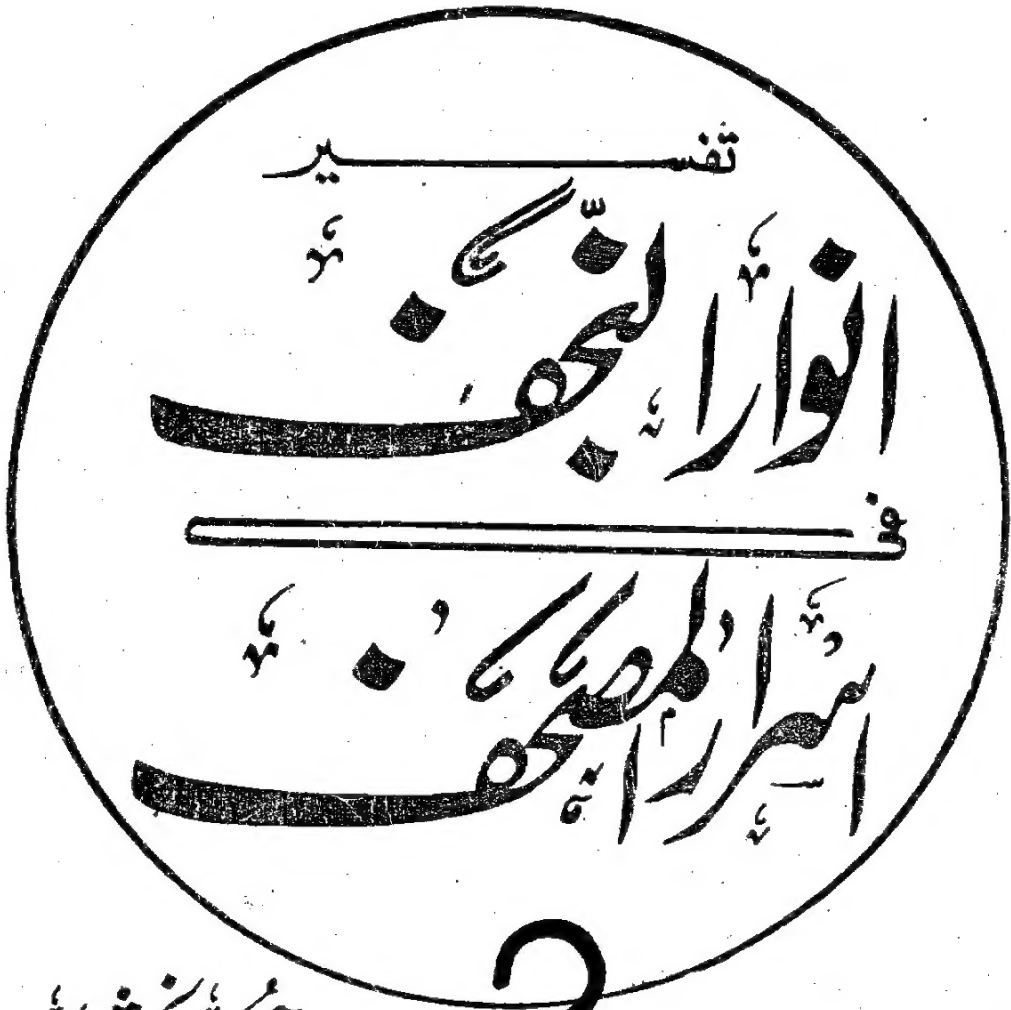 تفسیر
انوار النّجف
فی
اسرار المصحف